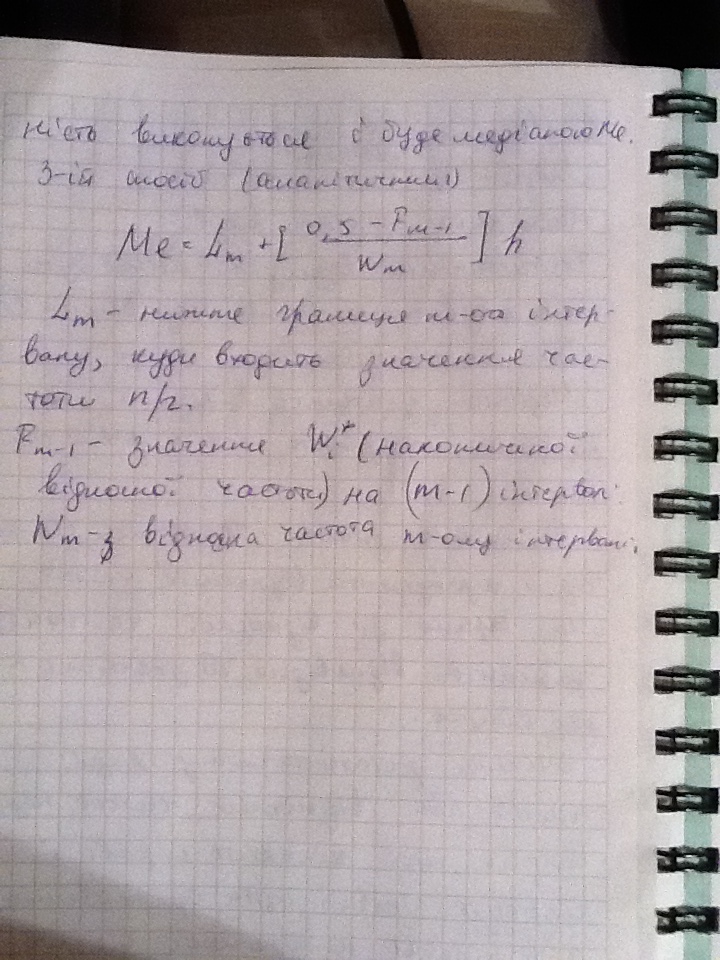 виконується і буде медіаною Me.
3-ій спосіб (аналітичний)
Me = Lm + [ (0,5 - Fm-1) / Wm ] h
Lm - нижнє границя m-го інтер-
валу, куди входить значення час-
тоти n/2.
Fm-1 - значення Wi* (накопиченої
відносної частоти) на (m-1) інтервал
Wm - відносна частота m-ому інтервалі;